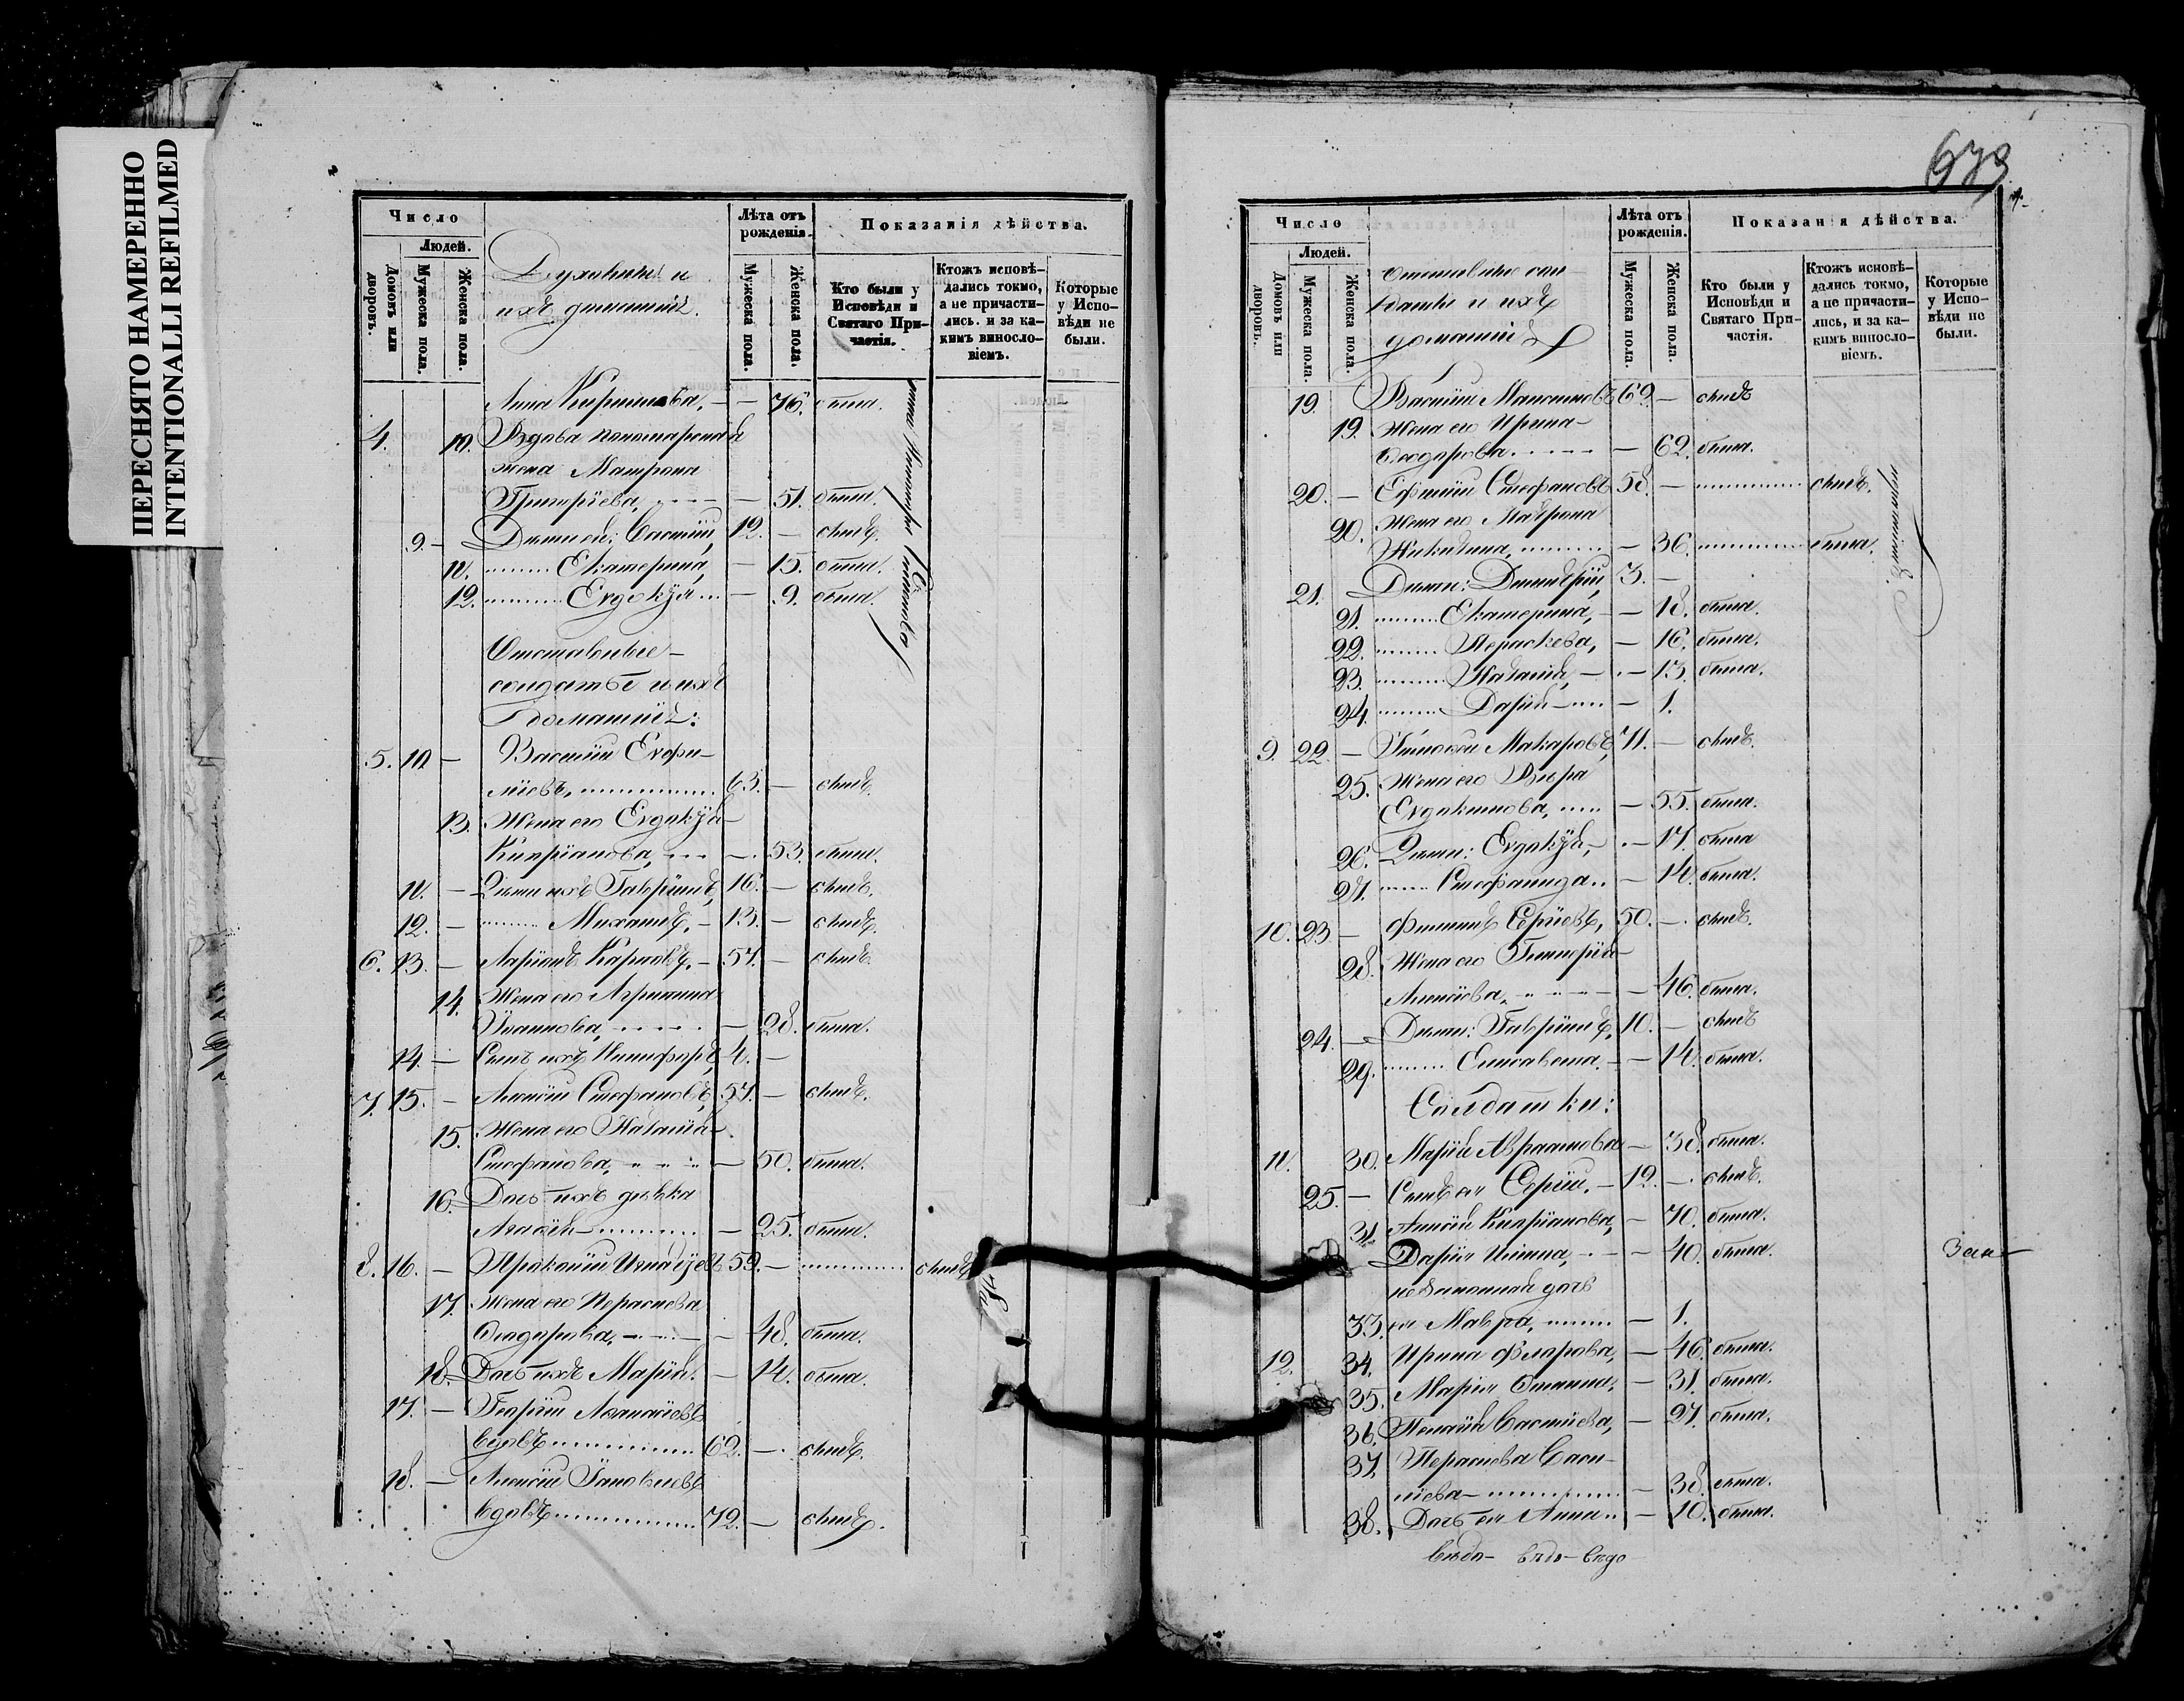 ПЕРЕСНЯТО НАМЕРЕННО
INTENTIONALLI REFILMED
Число
Людей.
Домовъ или дворовъ.
Мужеска пола.
Женска пола.
Духовныя и
ихъ домашнія.
Лѣта отъ рожденія.
Мужеска пола.
Женска пола.
Показанія дѣйства.
Кто были у Исповѣди и Святаго Причастія.
Ктожъ исповѣдались токмо, а не причастились. и за какимъ винословіемъ.
Которые у Исповѣди не были.
Анна — — 76. была.
4. 10. Вдова пономарская
жена Матрона
Григоріева, — 51. была.
9. — Дѣти ея: Василій, 12. — былъ.
11. Екатерина, — 15. была.
12. Евдокія — 9. была.
Отставные
солдаты и ихъ
домашнія:
5. 10 — Василій Евфи-
міевъ, 63. — былъ.
13. Жена его Евдокія
Кипріанова, — 53. была.
11. — Дѣти ихъ Гавріилъ, 16. — былъ.
12. — Михаилъ, 13. — былъ.
6. 13. — Ларіонъ Карповъ, 57. — былъ.
14. Жена его Агрипина
Іоаннова, — 28. была.
14. — Сынъ ихъ Никифоръ, 4. —
7. 15. — Алексій Стефановъ, 57. — былъ.
15. Жена его Наталія
Стефанова, — 50. была.
16. Дочь ихъ дѣвка
— 25. была.
8. 16. — Прокопій Игнатьевъ 59. — былъ
17. Жена его Параскева
Ѳеодорова, — 48. была.
18. Дочь ихъ Марія. — 14. была.
17. — Георгій Аѳанасіевъ
вдовъ 62. — былъ.
18. — Алексій Іаковлевъ
вдовъ 72. — былъ.
679
Число
Людей.
Домовъ или дворовъ.
Мужеска пола.
Женска пола.
Отставные сол
даты и ихъ
домашнія
Лѣта отъ рожденія.
Мужеска пола.
Женска пола.
Показанія дѣйства.
Кто были у Исповѣди и Святаго Причастія.
Ктожъ исповѣдались токмо, а не причастились, и за какимъ винословіемъ.
Которые у Исповѣди не были.
19. Василій Максимовъ 69. — былъ
19. Жена его Ирина
Ѳеодорова. — 62. была.
20. — Ефимій Стефановъ 58. — былъ.
20. Жена его Матрона
Никитина, — 36. была.
21. Дѣти: Димитрій, 3. —
21. Екатерина, — 18. была.
22. Параскева, — 16. была.
23. Наталія, — 13. была.
24. Дарія — 1.
9. 22. — Макаровъ, 71. — былъ.
25. Жена его Вѣра
Евдокимова, — 55. была.
26. Дѣти: Евдокія, — 17. была
27. Стефанида — 14. была.
10. 23 — Филиппъ Сергіевъ, 50. — былъ.
28. Жена его Гликерія
Алексіева, — 46. была.
24. — Дѣти: Гавріилъ, 10. — былъ
29. Елисавета. — 14. была.
Солдатки:
11. 30. Марія Авраамова — 38. была.
25. — Сынъ ея Сергій. — 12. — былъ.
31. Кипріанова, — 70. была.
Дарія Ильина, — 40. была.
незаконная дочь
33. ея Мавра, — 1.
12. 34. Ирина Фларова, — 46. была.
35. Марія — 31. была.
36. Пелагія Василіева, — 27. была.
37. Параскева Васи-
ліева — 38. была.
38. Дочь ея Анна — 10. была.